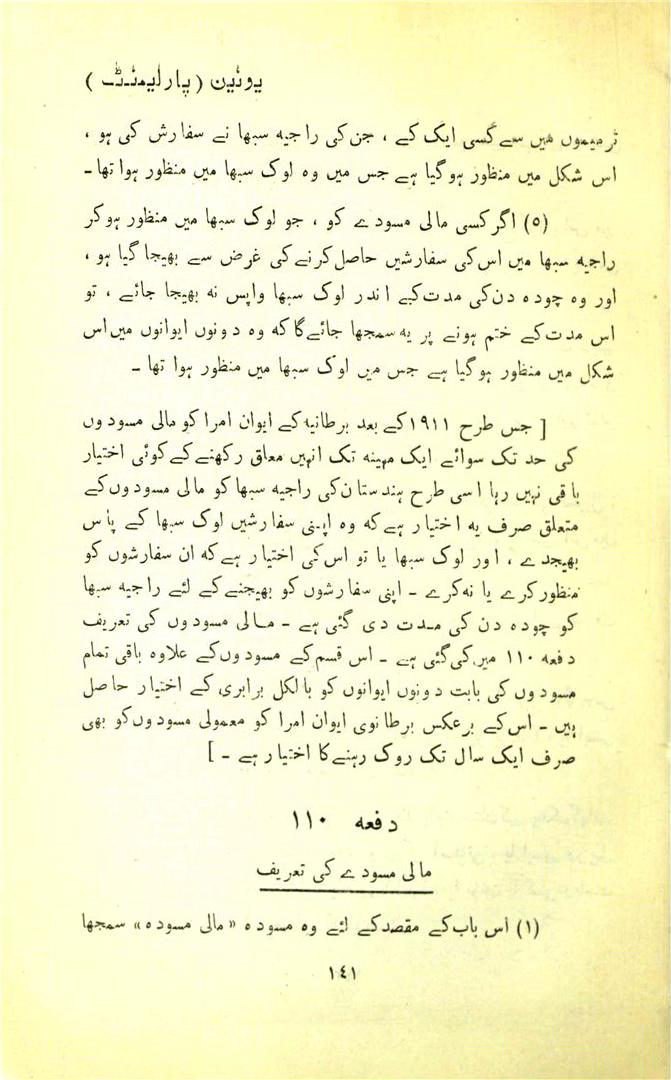 یونین (پارلیمنٹ)
ترمیموں میں سے کسی ایک کے ، جن کی راجیہ سبھا نے سفارش کی ہو ،
اس شکل میں منظور ہوگیا ہے جس میں وہ لوک سبھا میں منظور ہوا تھا ۔
(۵) اگر کسی مالی مسودے کو ، جو لوک سبھا میں منظور ہوکر
راجیہ سبھا میں اس کی سفارشیں حاصل کرنے کی غرض سے بھیجا گیا ہو ،
اور وہ چودہ دن کی مدت کے اندر لوک سبھا واپس نہ بھیجا جائے ، تو
اس مدت کے ختم ہونے پر یہ سمجھا جائے گا کہ وہ دونوں ایوانوں میں اس
شکل میں منظور ہوگیا ہے جس میں لوک سبھا میں منظور ہوا تھا ۔
[ جس طرح ۱۹۱۱ کے بعد برطانیہ کے ایوان امرا کو مالی مسودوں
کی حد تک سوائے ایک مہینہ تک انہیں معلق رکھنے کے کوئی اختیار
باقی نہیں رہا اسی طرح ہندستان کی راجیہ سبھا کو مالی مسودوں کے
متعلق صرف یہ اختیار ہے کہ وہ اپنی سفارشیں لوک سبھا کے پاس
بھیجدے ، اور لوک سبھا یا تو اس کی اختیار ہے کہ ان سفارشوں کو
منظور کرے یا نہ کرے ۔ اپنی سفارشوں کو بھیجنے کے لئے راجیہ سبھا
کو چودہ دن کی مدت دی گئی ہے ۔ مالی مسودوں کی تعریف
دفعہ ۱۱۰ میں کی گئی ہے ۔ اس قسم کے مسودوں کے علاوہ باقی تمام
مسودوں کی بابت دونوں ایوانوں کو بالکل برابری کے اختیار حاصل
ہیں ۔ اس کے برعکس برطانوی ایوان امرا کو معمولی مسودوں کو بھی
صرف ایک سال تک روک رہنے کا اختیار ہے ۔ ]
دفعہ ۱۱۰
مالی مسودے کی تعریف
(۱) اس باب کے مقصد کے لئے وہ مسودہ «مالی مسودہ» سمجھا
۱٤۱